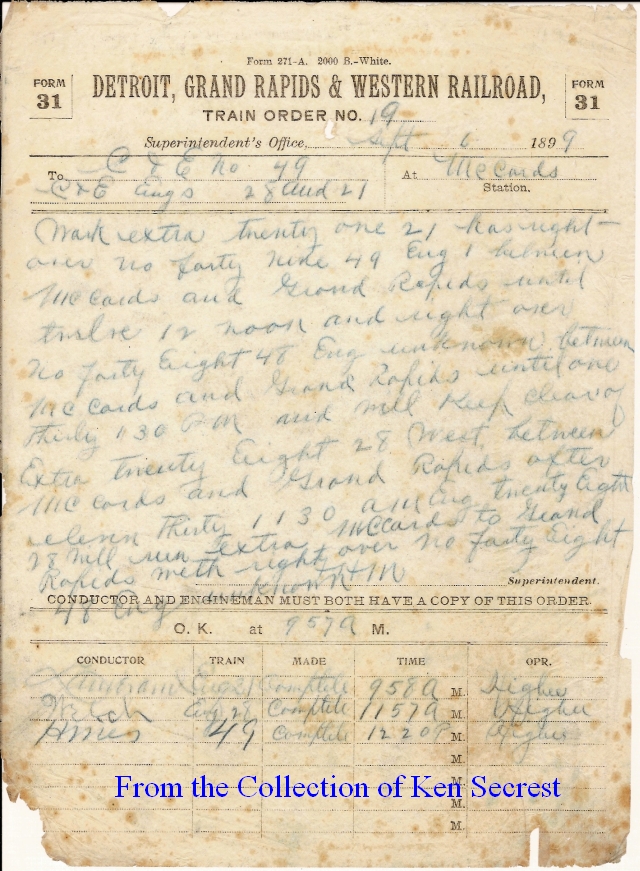 Form 271-A. 2000 B.-White.
FORM 31
DETROIT, GRAND RAPIDS & WESTERN RAILROAD,
FORM 31
TRAIN ORDER NO. 19
Superintendent's Office, Sept 6 1899
To C & E No 49
At McCords Station.
C & E Engs 28 and 21
Work extra twenty one 21 has right
over no forty nine 49 Eng 1 between
McCords and Grand Rapids until
twelve 12 noon and right over
no forty Eight 48 Eng unknown between
McCords and Grand Rapids until one
thirty 130 PM and will Keep clear of
Extra twenty Eight 28 West between
McCords and Grand Rapids after
eleven thirty 1130 am Eng twenty Eight
28 will run Extra McCards to Grand
Rapids with right over no forty Eight
48 Eng unknown HM
Superintendent.
CONDUCTOR AND ENGINEMAN MUST BOTH HAVE A COPY OF THIS ORDER.
O. K. at 957A M.
CONDUCTOR TRAIN MADE TIME OPR.
Eng 21 Complete 958A M.
Welch Eng 28 Complete 1157A M.
49 Complete 1220P M.
M.
M.
M.
M.
From the Collection of Ken Secrest